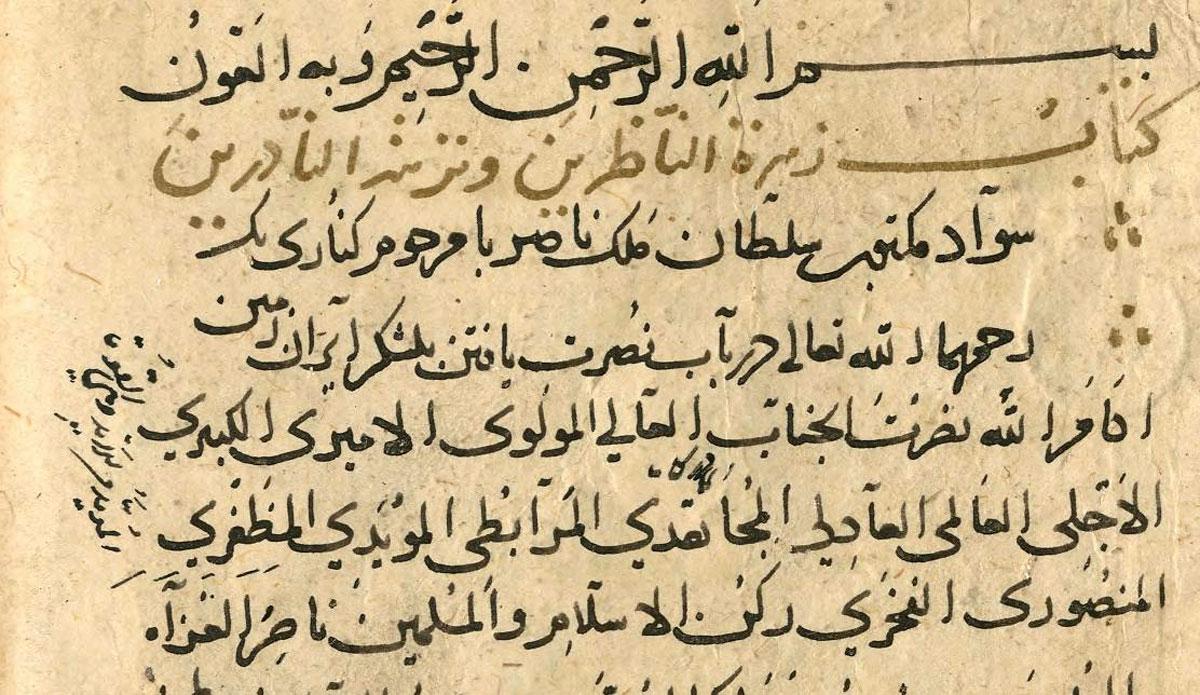 بسم الله الرحمن الرحيم وبه العون
كتاب زهرة الناظرين ونزهة النادرين
سوآد مكتوب سلطان ملك ناصر با مرحوم كناری بك
رحمهما الله تعالى در باب نصرت يافتن بلشكر ايران زمين
ادام الله نصرت الجناب العالي المولوى الاميرى الكبيري
الاجلى العالمى العادلى المجاهدي المرابطى المؤيدي المظفري
المنصورى الفخري ركن الاسلام والمسلمين ناصر الغزاه